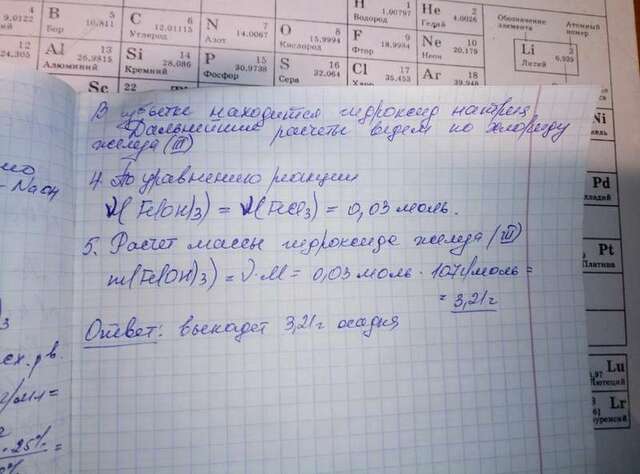 4 9,0122 5 B 10,811 Бор 6 C 12,01115 Углерод 7 N 14,0067 Азот 8 O 15,9994 Кислород H 1,00797 Водород He 2 4,0026 Гелий Обозначение элемента Атомный номер
12 24,305 Al 13 26,9815 Алюминий Si 14 28,086 Кремний P 15 30,9738 Фосфор S 16 32,064 Сера F 9 18,9984 Фтор Ne 10 20,179 Неон Li Литий 6,939
Sc 22 Cl 17 35,453 Хлор Ar 18 39,948
В избытке находится гидроксид натрия
Дальнейшие расчеты ведем по хлориду
железа (III)
4. По уравнению реакции
ν(Fe(OH)3) = ν(FeCl3) = 0,03 моль.
5. Расчет массы гидроксида железа (III)
m(Fe(OH)3) = ν · M = 0,03 моль · 107 г/моль =
= 3,21 г
Ответ: выпадет 3,21 г осадка
- NaOH
Ni
Pd
Pt
Платина
Lu
Лютеций
Lr